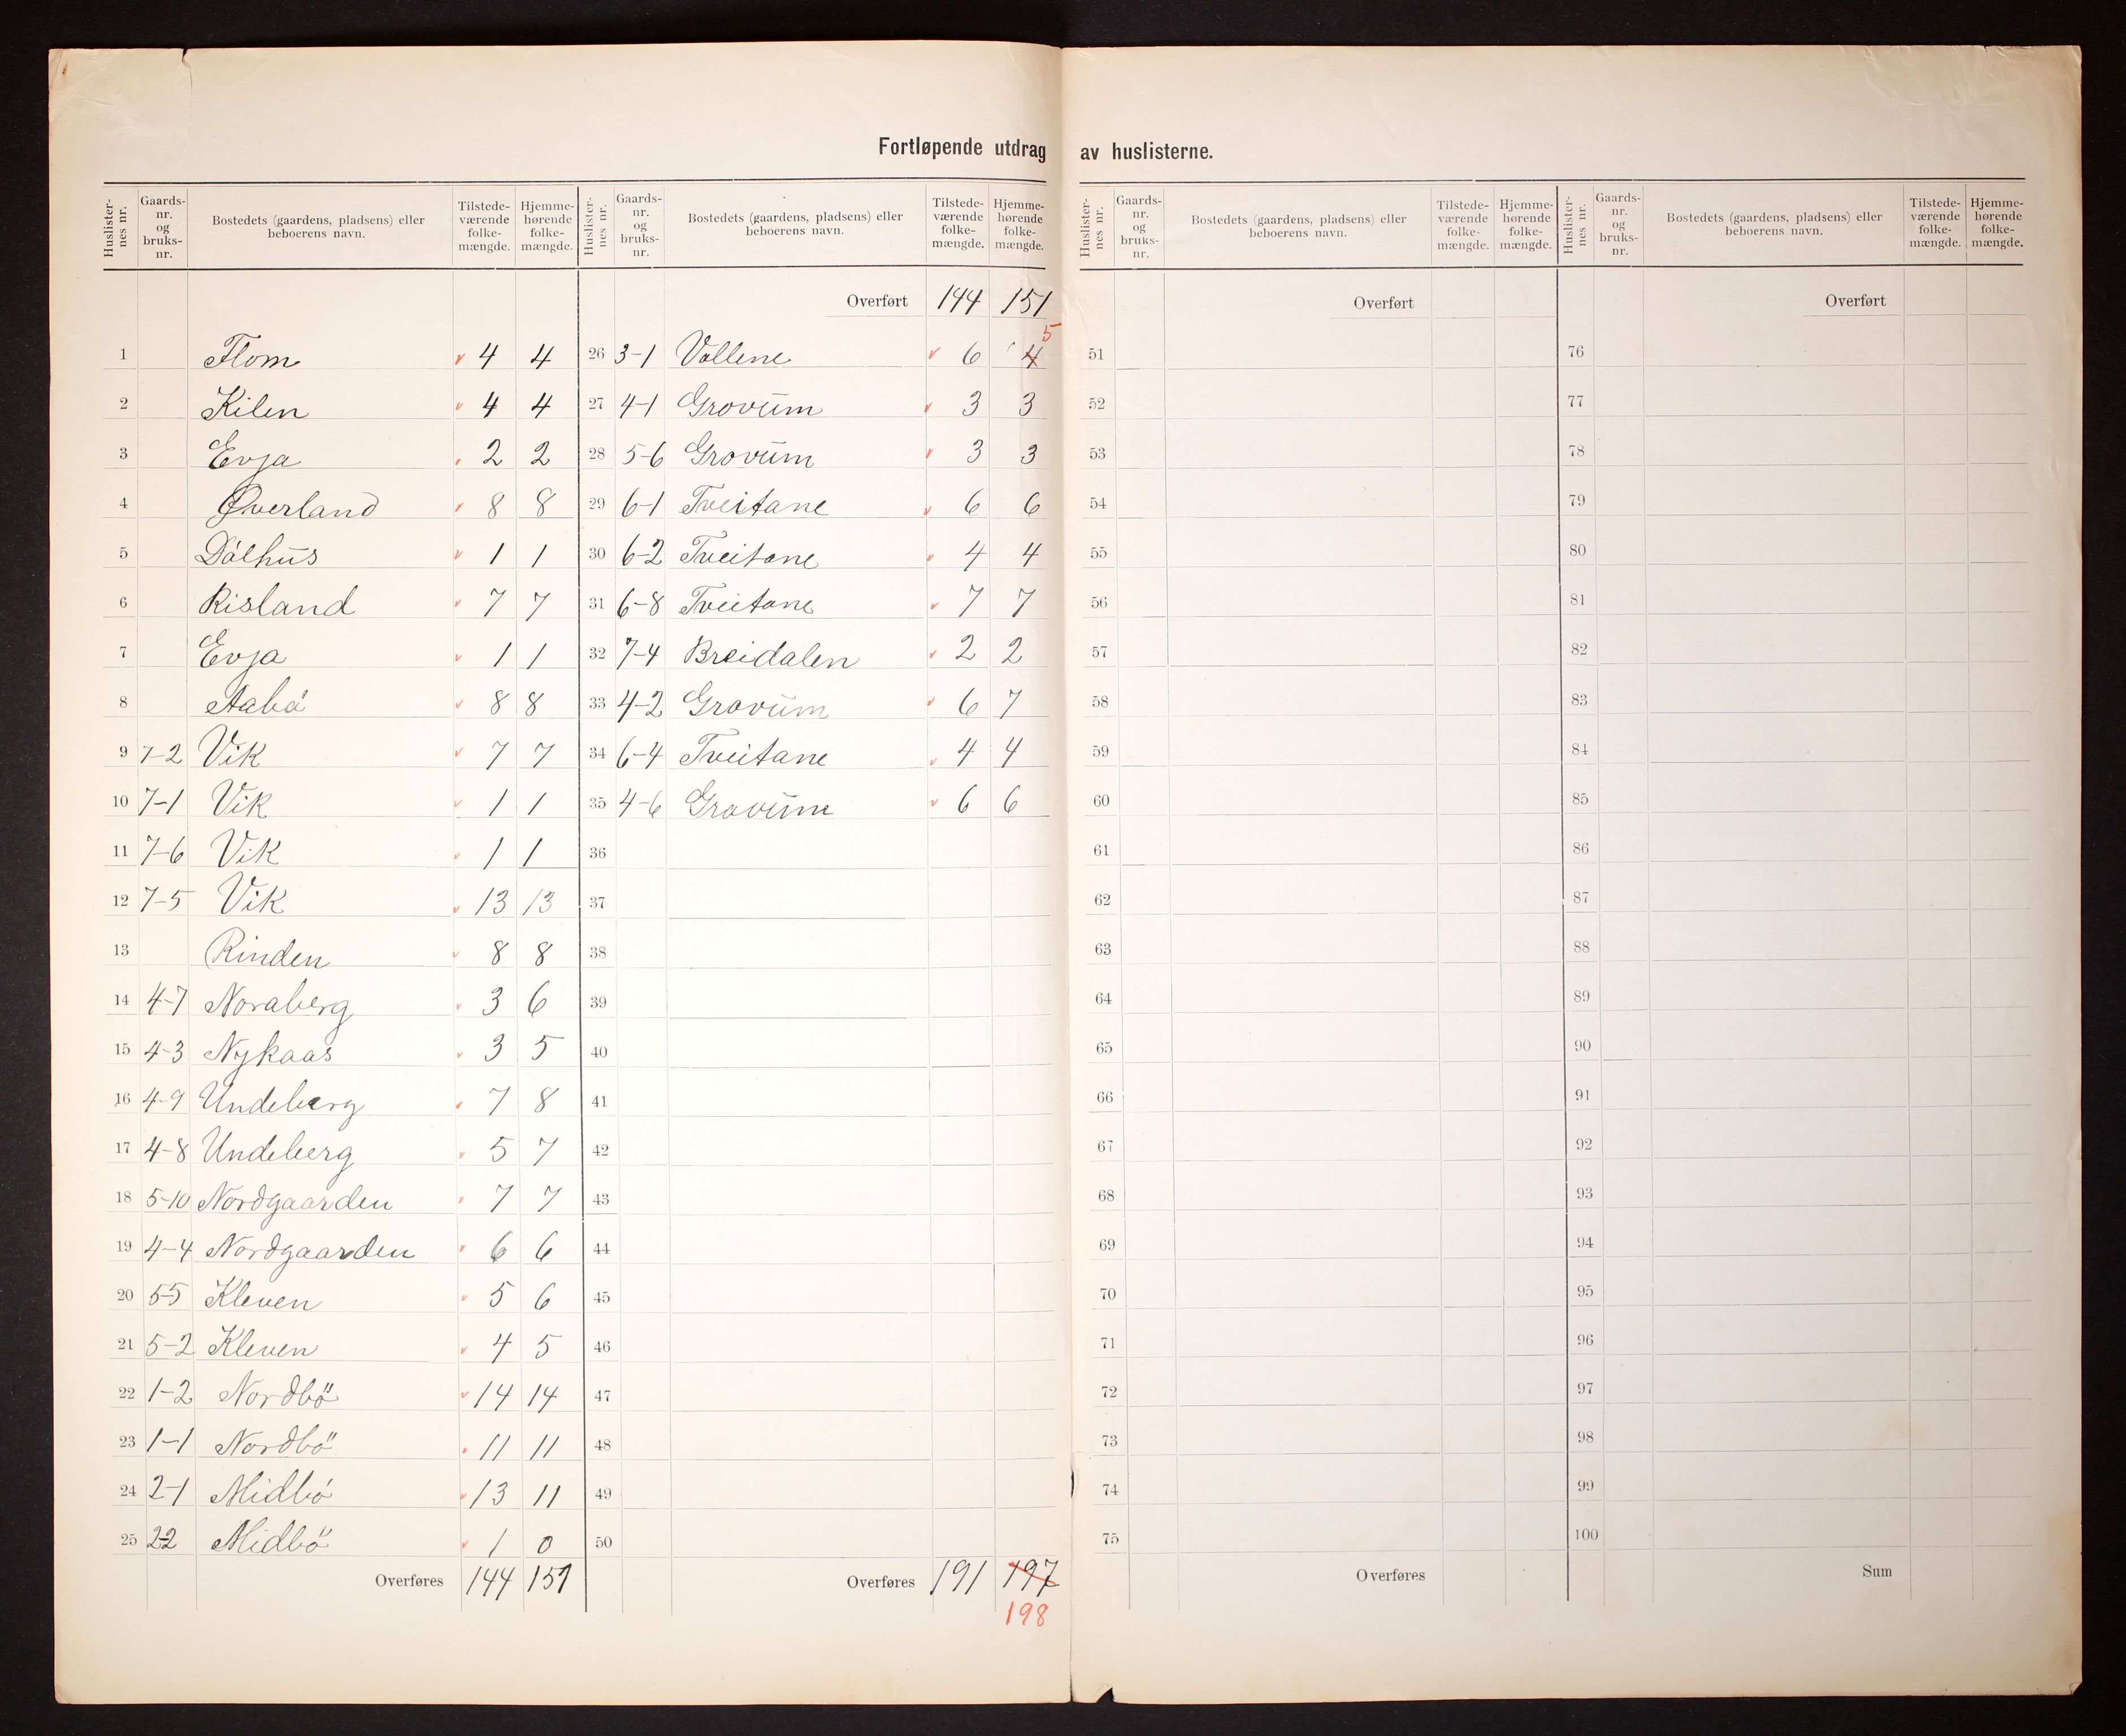 Fortløpende utdrag av huslisterne.
Huslisternes nr. Gaards-nr. og bruks-nr. Bostedets (gaardens, pladsens) eller beboerens navn. Tilstede-værende folke-mængde. Hjemme-hørende folke-mængde.
1 Flom 4 4
2 Kilen 4 4
3 Evja 2 2
4 Øverland 8 8
5 Dalhus 1 1
6 Risland 7 7
7 Evja 1 1
8 Aabö 8 8
9 7-2 Vik 7 7
10 7-1 Vik 1 1
11 7-6 Vik 1 1
12 7-5 Vik 13 13
13 Rinden 8 8
14 4-7 Noraberg 3 6
15 4-3 Nykaas 3 5
16 4-9 Undeberg 7 8
17 4-8 Undeberg 5 7
18 5-10 Nordgaarden 7 7
19 4-4 Nordgaarden 6 6
20 5-5 Kleven 5 6
21 5-2 Kleven 4 5
22 1-2 Nordbö 14 14
23 1-1 Nordbö 11 11
24 2-1 Midbö 13 11
25 2-2 Midbö 1 0
Overføres 144 151
Huslisternes nr. Gaards-nr. og bruks-nr. Bostedets (gaardens, pladsens) eller beboerens navn. Tilstede-værende folke-mængde. Hjemme-hørende folke-mængde.
Overført 144 151
26 3-1 Vollene 6 4 5
27 4-1 Grovum 3 3
28 5-6 Grovum 3 3
29 6-1 Tveitane 6 6
30 6-2 Tveitane 4 4
31 6-8 Tveitane 7 7
32 7-4 Breidalen 2 2
33 4-2 Grovum 6 7
34 6-4 Tveitane 4 4
35 4-6 Grovum 6 6
36
37
38
39
40
41
42
43
44
45
46
47
48
49
50
Overføres 191 197
198
Huslisternes nr. Gaards-nr. og bruks-nr. Bostedets (gaardens, pladsens) eller beboerens navn. Tilstede-værende folke-mængde. Hjemme-hørende folke-mængde.
Overført
51
52
53
54
55
56
57
58
59
60
61
62
63
64
65
66
67
68
69
70
71
72
73
74
75
Overføres
Huslisternes nr. Gaards-nr. og bruks-nr. Bostedets (gaardens, pladsens) eller beboerens navn. Tilstede-værende folke-mængde. Hjemme-hørende folke-mængde.
Overført
76
77
78
79
80
81
82
83
84
85
86
87
88
89
90
91
92
93
94
95
96
97
98
99
100
Sum